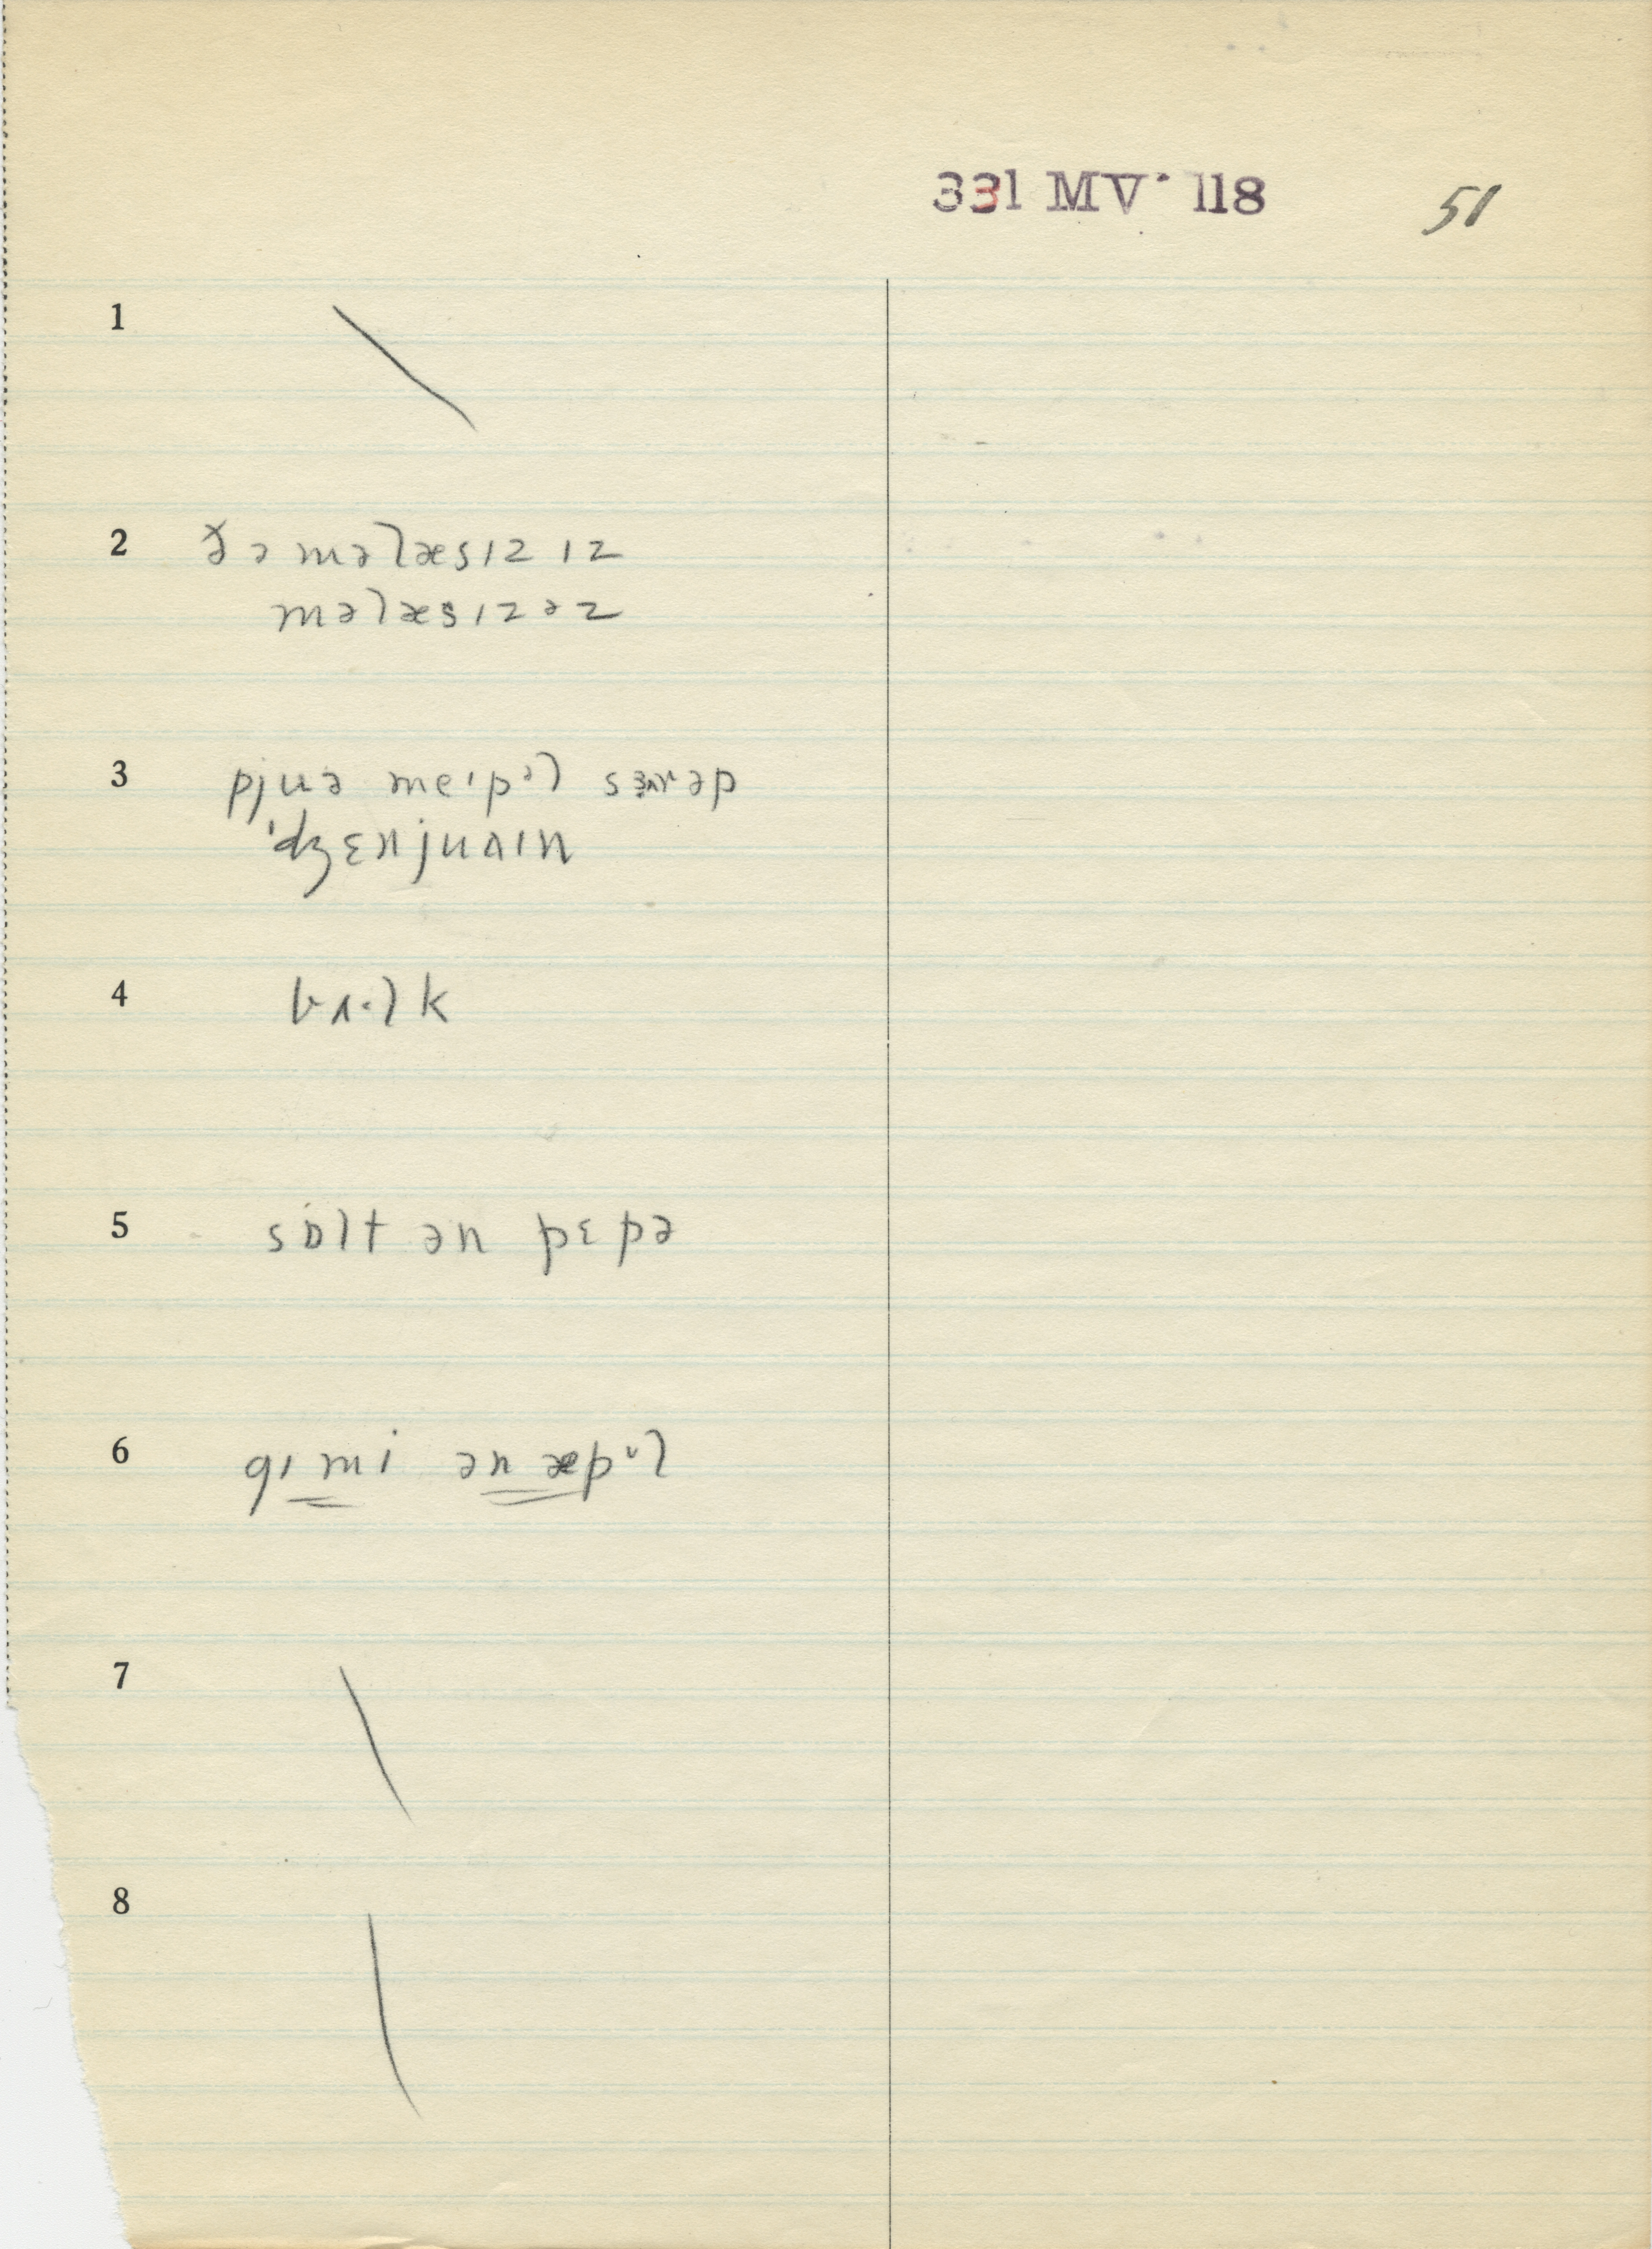 331 MV· 118 51
1
2 ðə məlæsɪz ɪz
məlæsɪzəz
3 pjuə meɪpəl
ˈdʒɛnjuaɪn
4
5 sɒlt ən pɛpə
6 gɪ mi ən æpᵘl
7
8